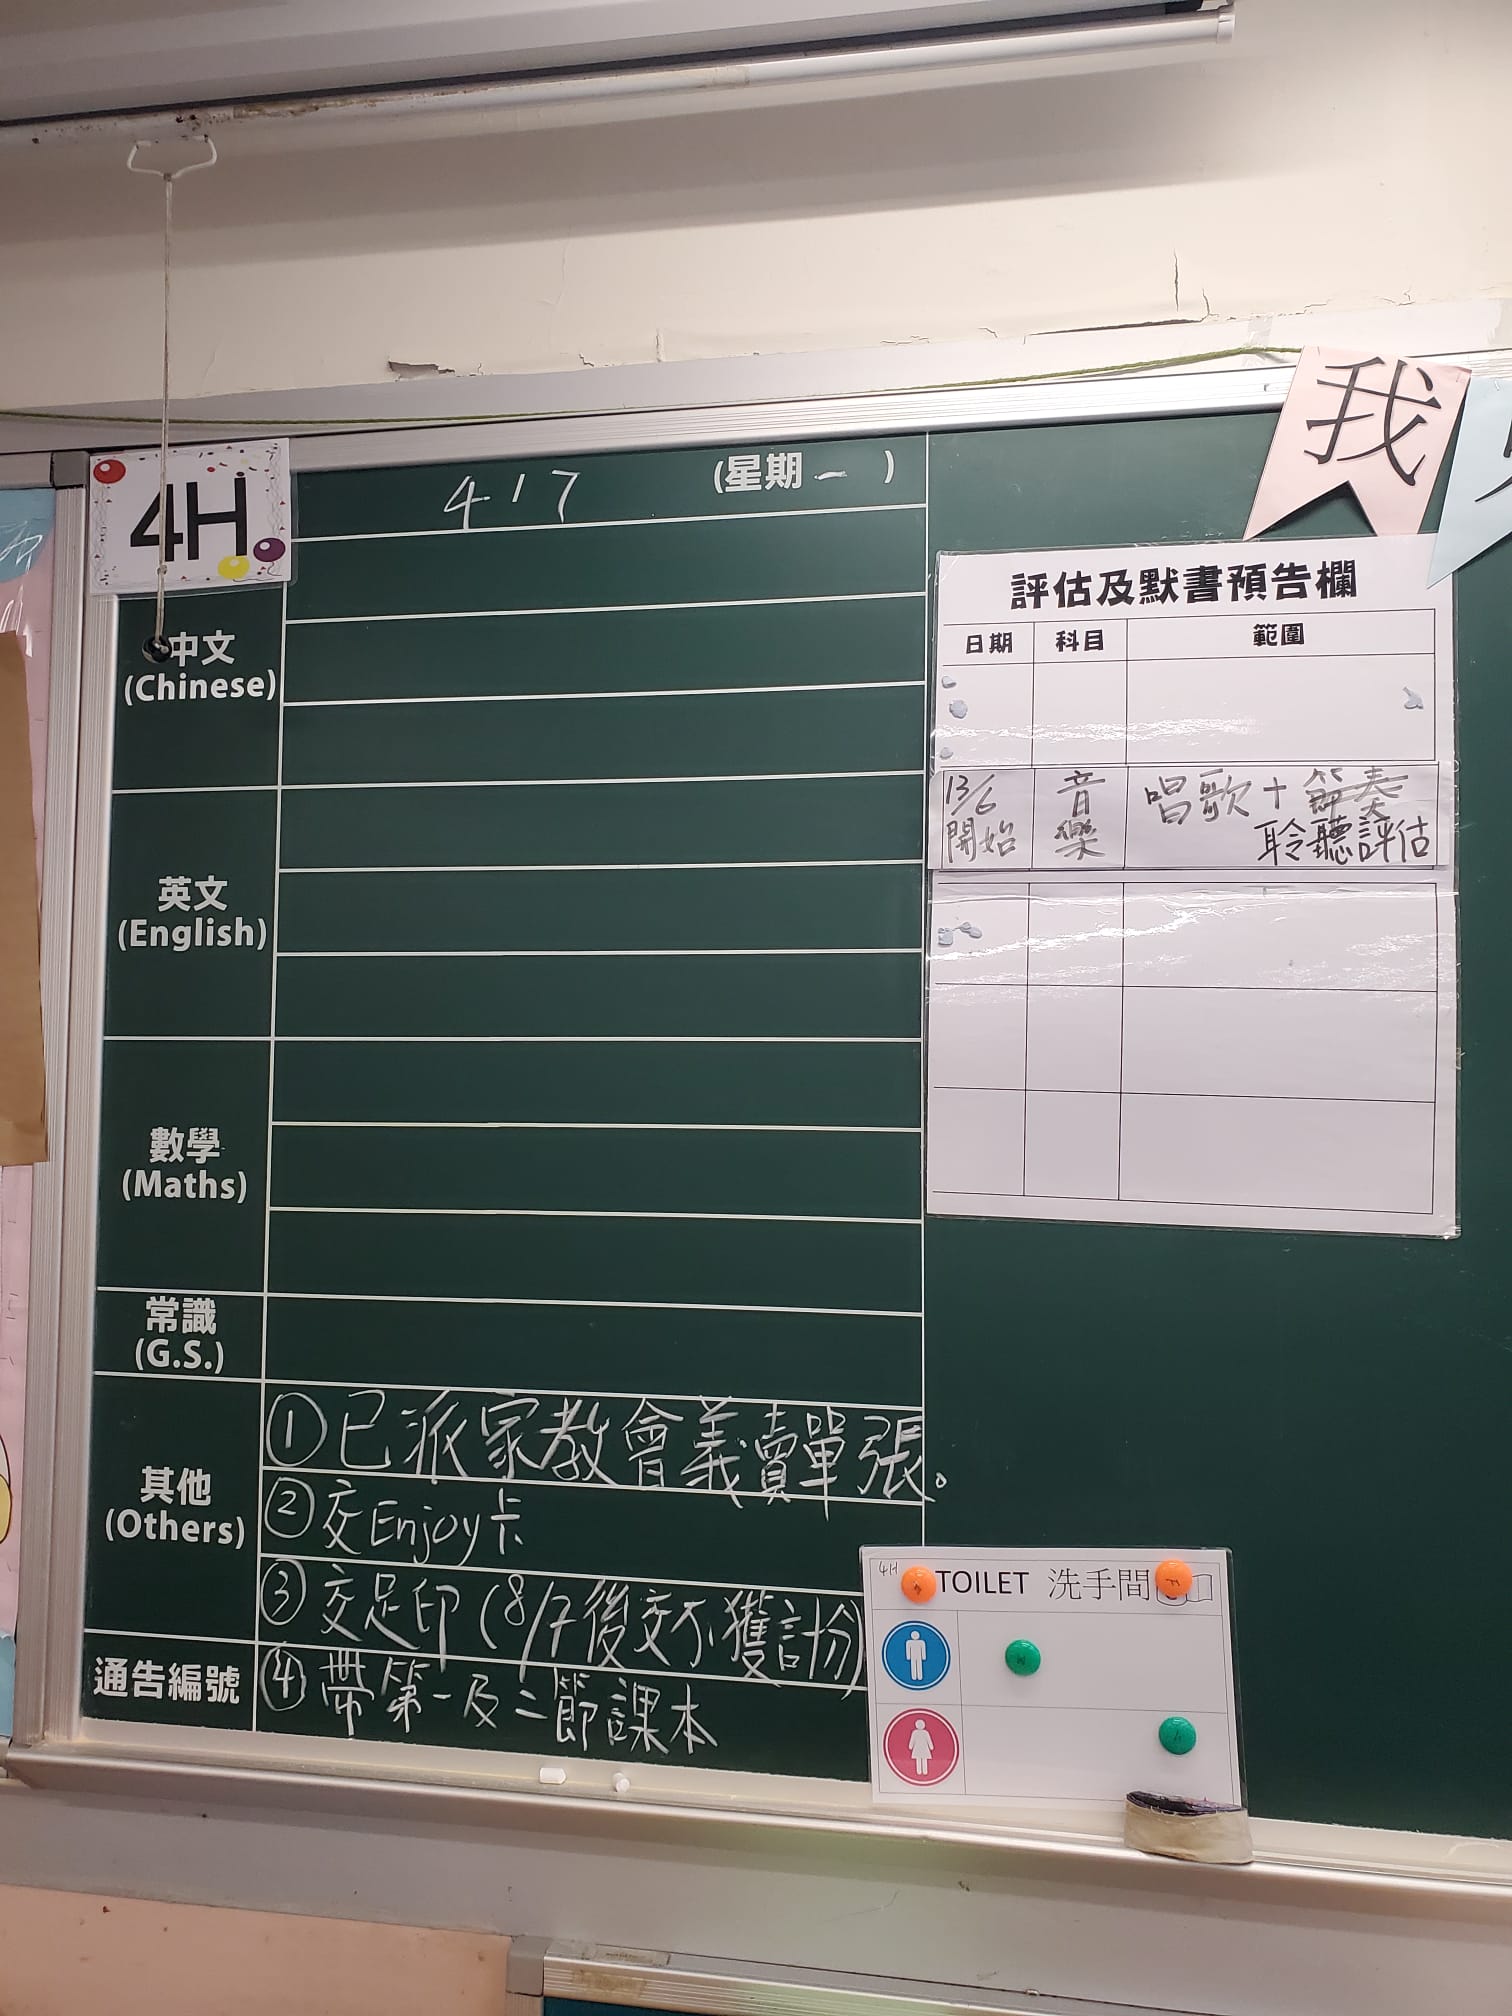 我
4H
4/7
(星期一)
中文
(Chinese)
英文
(English)
數學
(Maths)
常識
(G.S.)
其他
(Others)
①已派家教會義賣單張。
②交Enjoy卡
③交足印(8/7後交不獲計分)
通告編號
④帶第一及二節課本
評估及默書預告欄
日期 科目 範圍
13/6 音 唱歌+節奏
開始 樂 聆聽評估
4H TOILET 洗手間